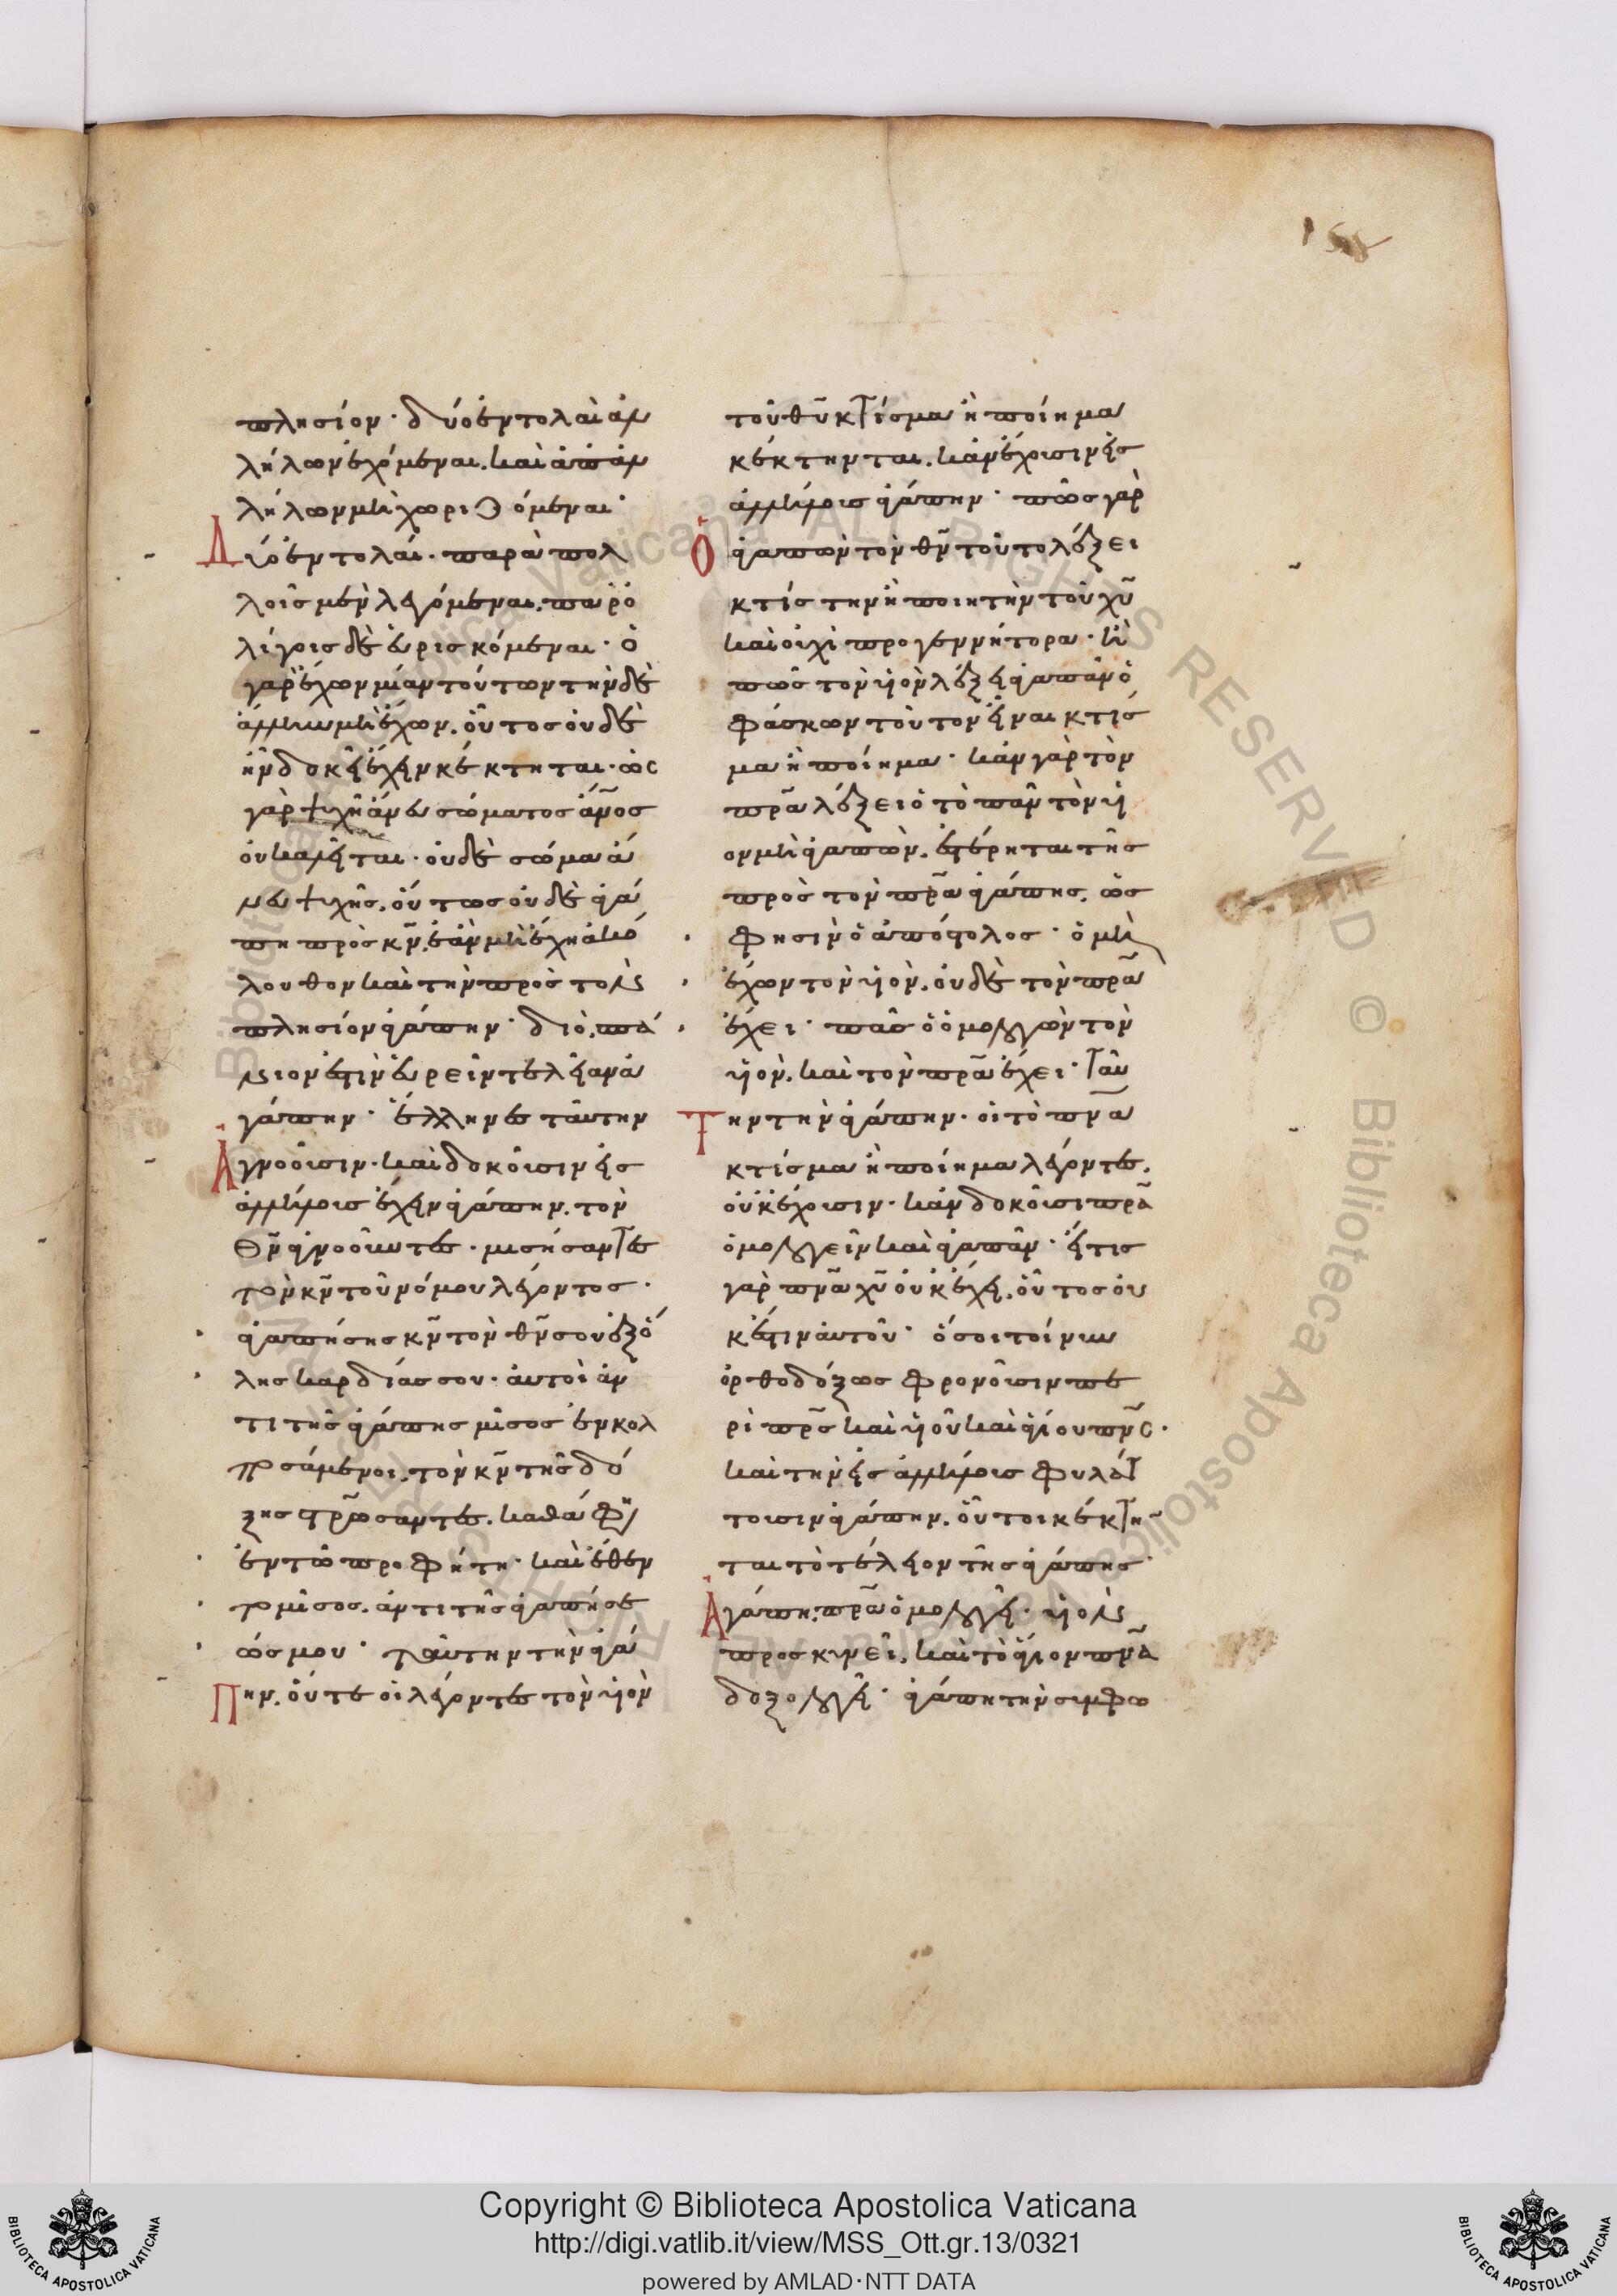 πλησίον· δύο ἐντολαὶ ἀλ
λήλων ἐχόμεναι. καὶ ἀπ' ἀλ
λήλων μὴ χωριζόμεναι·
Δύο ἐντολαί· παρὰ πολ
λοῖς μὲν λεγόμεναι. παρ' ὀ
λίγοις δὲ εὑρισκόμεναι· ὁ
γὰρ ἔχων μίαν τούτων τὴν δὲ
ἄλλην μὴ ἔχων. οὗτος οὐδὲ
ἣν δοκεῖ ἔχειν κέκτηται· ὡς
γὰρ ψυχὴ ἄνευ σώματος ἄνος
οὐ καλεῖται· οὐδὲ σῶμα ἄ
νευ ψυχῆς. οὕτως οὐδὲ ἀγά
πη πρὸς κν. ἐὰν μὴ ἔχη ἀκό
λουθον καὶ τὴν πρὸς τοὺς
πλησίον ἀγάπην· διὸ. σπά
νιον ἐστὶν εὑρεῖν τελείαν ἀ
γάπην· ἕλληνες ταύτην
Ἀγνοοῦσιν· καὶ δοκοῦσιν εἰς
ἀλλήλους ἔχειν ἀγάπην. τὸν
θν ἀγνοοῦντες· μισήσαντες
τὸν κν τοῦ νόμου λέγοντος·
ἀγαπήσης κν τὸν θν σου ἐξ ὅ
λης καρδίας σου· αὐτοὶ ἀν
τὶ τῆς ἀγάπης μῖσος ἐγκολ
πωσάμενοι. τὸν κν τῆς δό
ξης στρώσαντες. καθά φη
ἐν τῶ προφήτη· καὶ ἔθεν
το μῖσος. ἀντὶ τῆς ἀγαπήσε
ώς μου· ταύτην τὴν ἀγά
Πην. οὔτε οἱ λέγοντες τὸν υἱὸν
τοῦ θυ κτίσμα ἢ ποίημα
κέκτηνται. κἂν ἔχουσιν εἰς
ἀλλήλους ἀγάπην· πῶς γὰρ
Ὁ ἀγαπῶν τὸν θν τοῦτο λέξει
κτίστην ἢ ποιητὴν τοῦ χυ
καὶ οὐχὶ προγεννήτορα· ἢ
πῶς τὸν υἱὸν λέξει ἀγαπᾶν ὁ
φάσκων τοῦτον εἶναι κτίσ
μα ἢ ποίημα· κἂν γὰρ τὸν
πρα λέξει ὁ τὸ πᾶν τὸν υἱ
ον μὴ ἀγαπῶν. ἐστέρηται τῆς
πρὸς τὸν πρα ἀγάπης. ὥς
φησιν ὁ ἀπόστολος· ὁ μὴ
ἔχων τὸν υἱὸν. οὐδὲ τὸν πρα
ἔχει· πᾶς ὁ ὁμολογῶν τὸν
υἱὸν. καὶ τὸν πρα ἔχει· ταύ
Την τὴν ἀγάπην· οἱ τὸ πνα
κτίσμα ἢ ποίημα λέγοντες.
οὐκ ἔχουσιν· κἂν δοκοῦσι πρα
ὁμολογεῖν καὶ ἀγαπᾶν· εἴ τις
γὰρ πνα χυ οὐκ ἔχει. οὗτος οὐ
κ ἔστιν αὐτοῦ· ὅσοι τοίνυν
ὀρθοδόξως φρονοῦσιν πε
ρὶ πρς καὶ υἱοῦ καὶ ἁγίου πνς·
καὶ τὴν εἰς ἀλλήλους φυλάτ
τουσιν ἀγάπην. οὗτοι κέκτην
ται τὸ τέλειον τῆς ἀγάπης·
Ἀγάπη. πρα ὁμολογεῖ· υἱοὺς
προσκυνεῖ. καὶ τὸ ἅγιον πνα
δοξολογεῖ· ἀγάπη τὴν συμφω
Copyright © Biblioteca Apostolica Vaticana
http://digi.vatlib.it/view/MSS_Ott.gr.13/0321
powered by AMLAD·NTT DATA
BIBLIOTECA APOSTOLICA VATICANA
BIBLIOTECA APOSTOLICA VATICANA